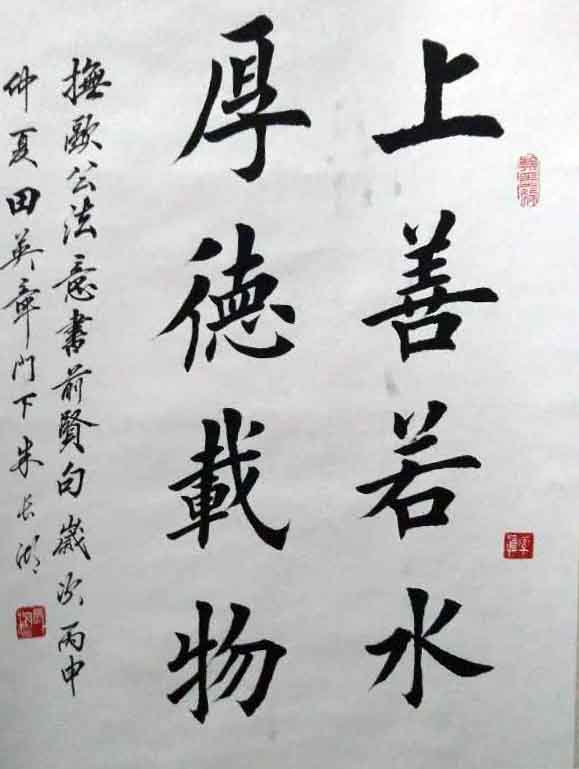 上善若水
厚德載物
撫歐公法意書前賢句歲次丙申
仲夏田英章門下朱長湖